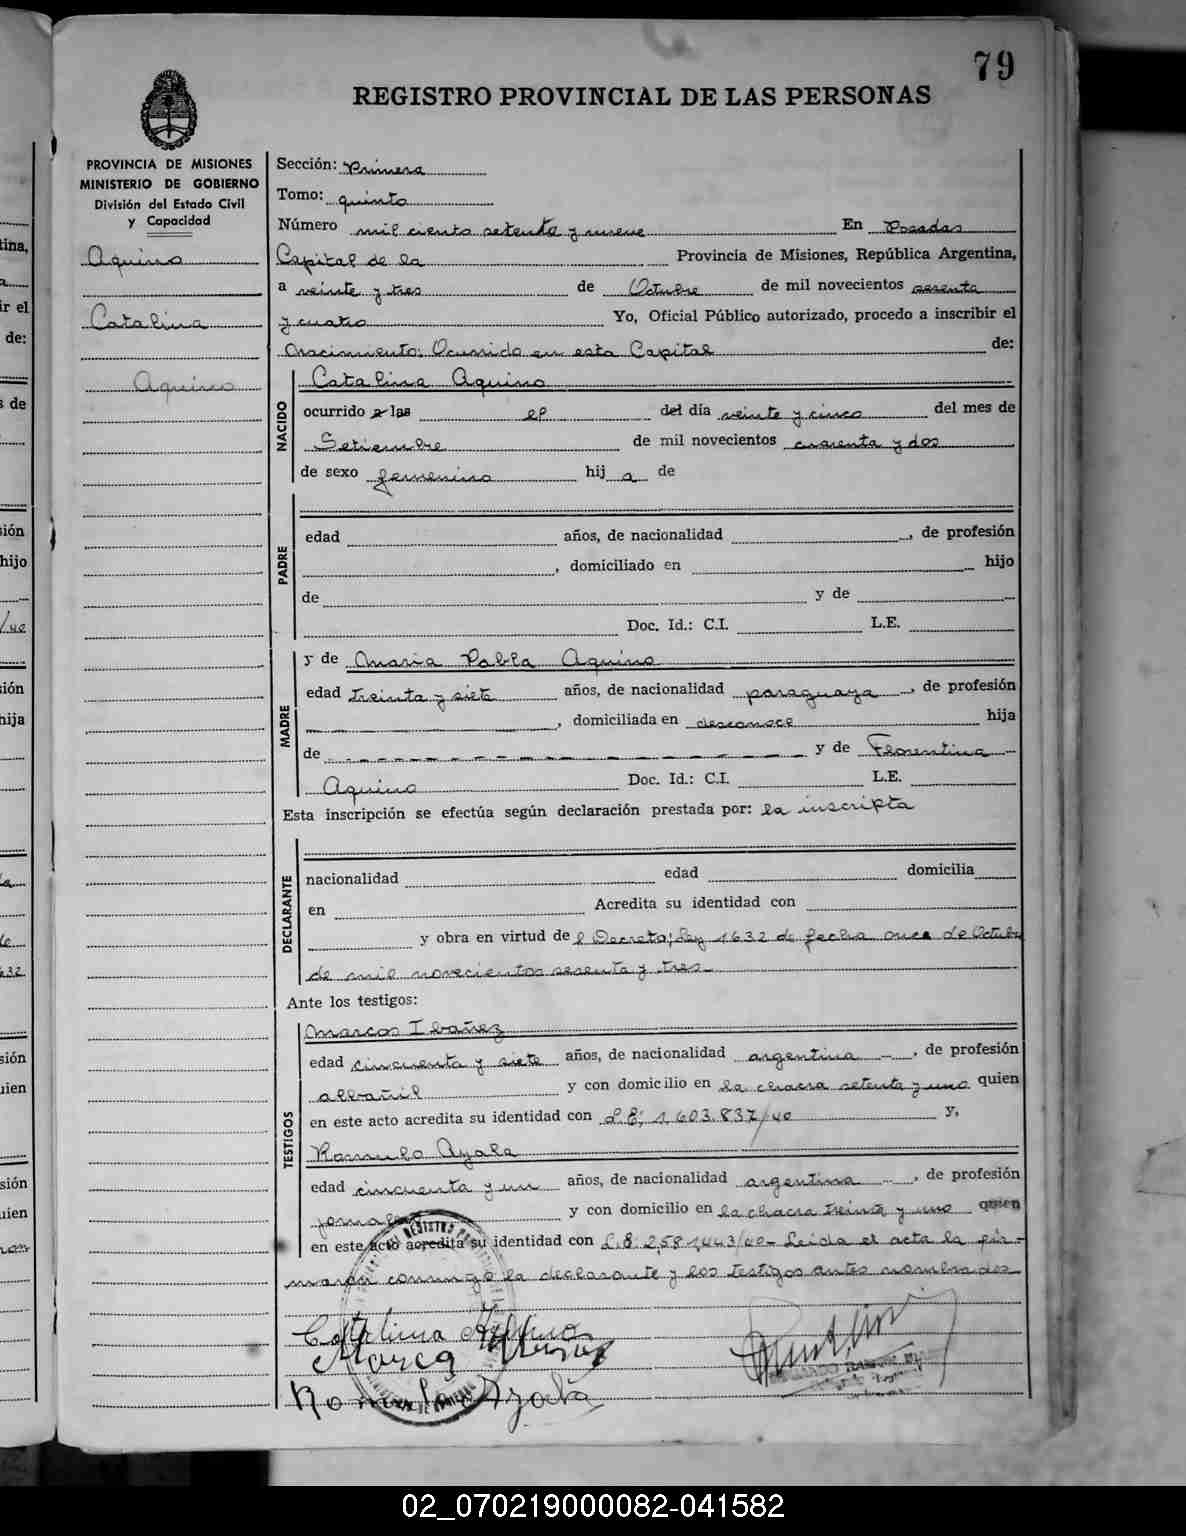 79
REGISTRO PROVINCIAL DE LAS PERSONAS
PROVINCIA DE MISIONES
MINISTERIO DE GOBIERNO
División del Estado Civil
y Capacidad
Aquino
Catalina
Aquino
Sección: Primera
Tomo: quinto
Número mil ciento setenta y nueve En Posadas
Capital de la Provincia de Misiones, República Argentina,
a veinte y tres de Octubre de mil novecientos sesenta
y cuatro Yo, Oficial Público autorizado, procedo a inscribir el
Nacimiento: Ocurrido en esta Capital de:
NACIDO
Catalina Aquino
ocurrido a las el del día veinte y cinco del mes de
Setiembre de mil novecientos cuarenta y dos
de sexo femenino hij a de
PADRE
edad años, de nacionalidad , de profesión
, domiciliado en hijo
de y de
Doc. Id.: C.I. L.E.
MADRE
y de Maria Pabla Aquino
edad treinta y siete años, de nacionalidad paraguaya , de profesión
, domiciliada en desconoce hija
de y de Florentina
Aquino Doc. Id.: C.I. L.E.
Esta inscripción se efectúa según declaración prestada por: la inscripta
DECLARANTE
nacionalidad edad domicilia
en Acredita su identidad con
y obra en virtud de l Decreto; Ley 1632 de fecha once de Octubre
de mil novecientos sesenta y tres
Ante los testigos:
TESTIGOS
Marcos Ibañez
edad cincuenta y siete años, de nacionalidad argentina , de profesión
albañil y con domicilio en la chacra setenta y uno quien
en este acto acredita su identidad con L.E; 1.603.837/40 y,
Romulo Ayala
edad cincuenta y un años, de nacionalidad argentina , de profesión
y con domicilio en la chacra treinta y uno quien
en este acto acredita su identidad con L.E: 2,581,443/40- Leida el acta la fir-
maron conmigo la declarante y los testigos antes nombrados
Catalina Aquino
Romulo Ayala
tina,
ir el
de:
s de
sión
hijo
/40
sión
hija
632
sión
uien
sión
uien
02_070219000082-041582